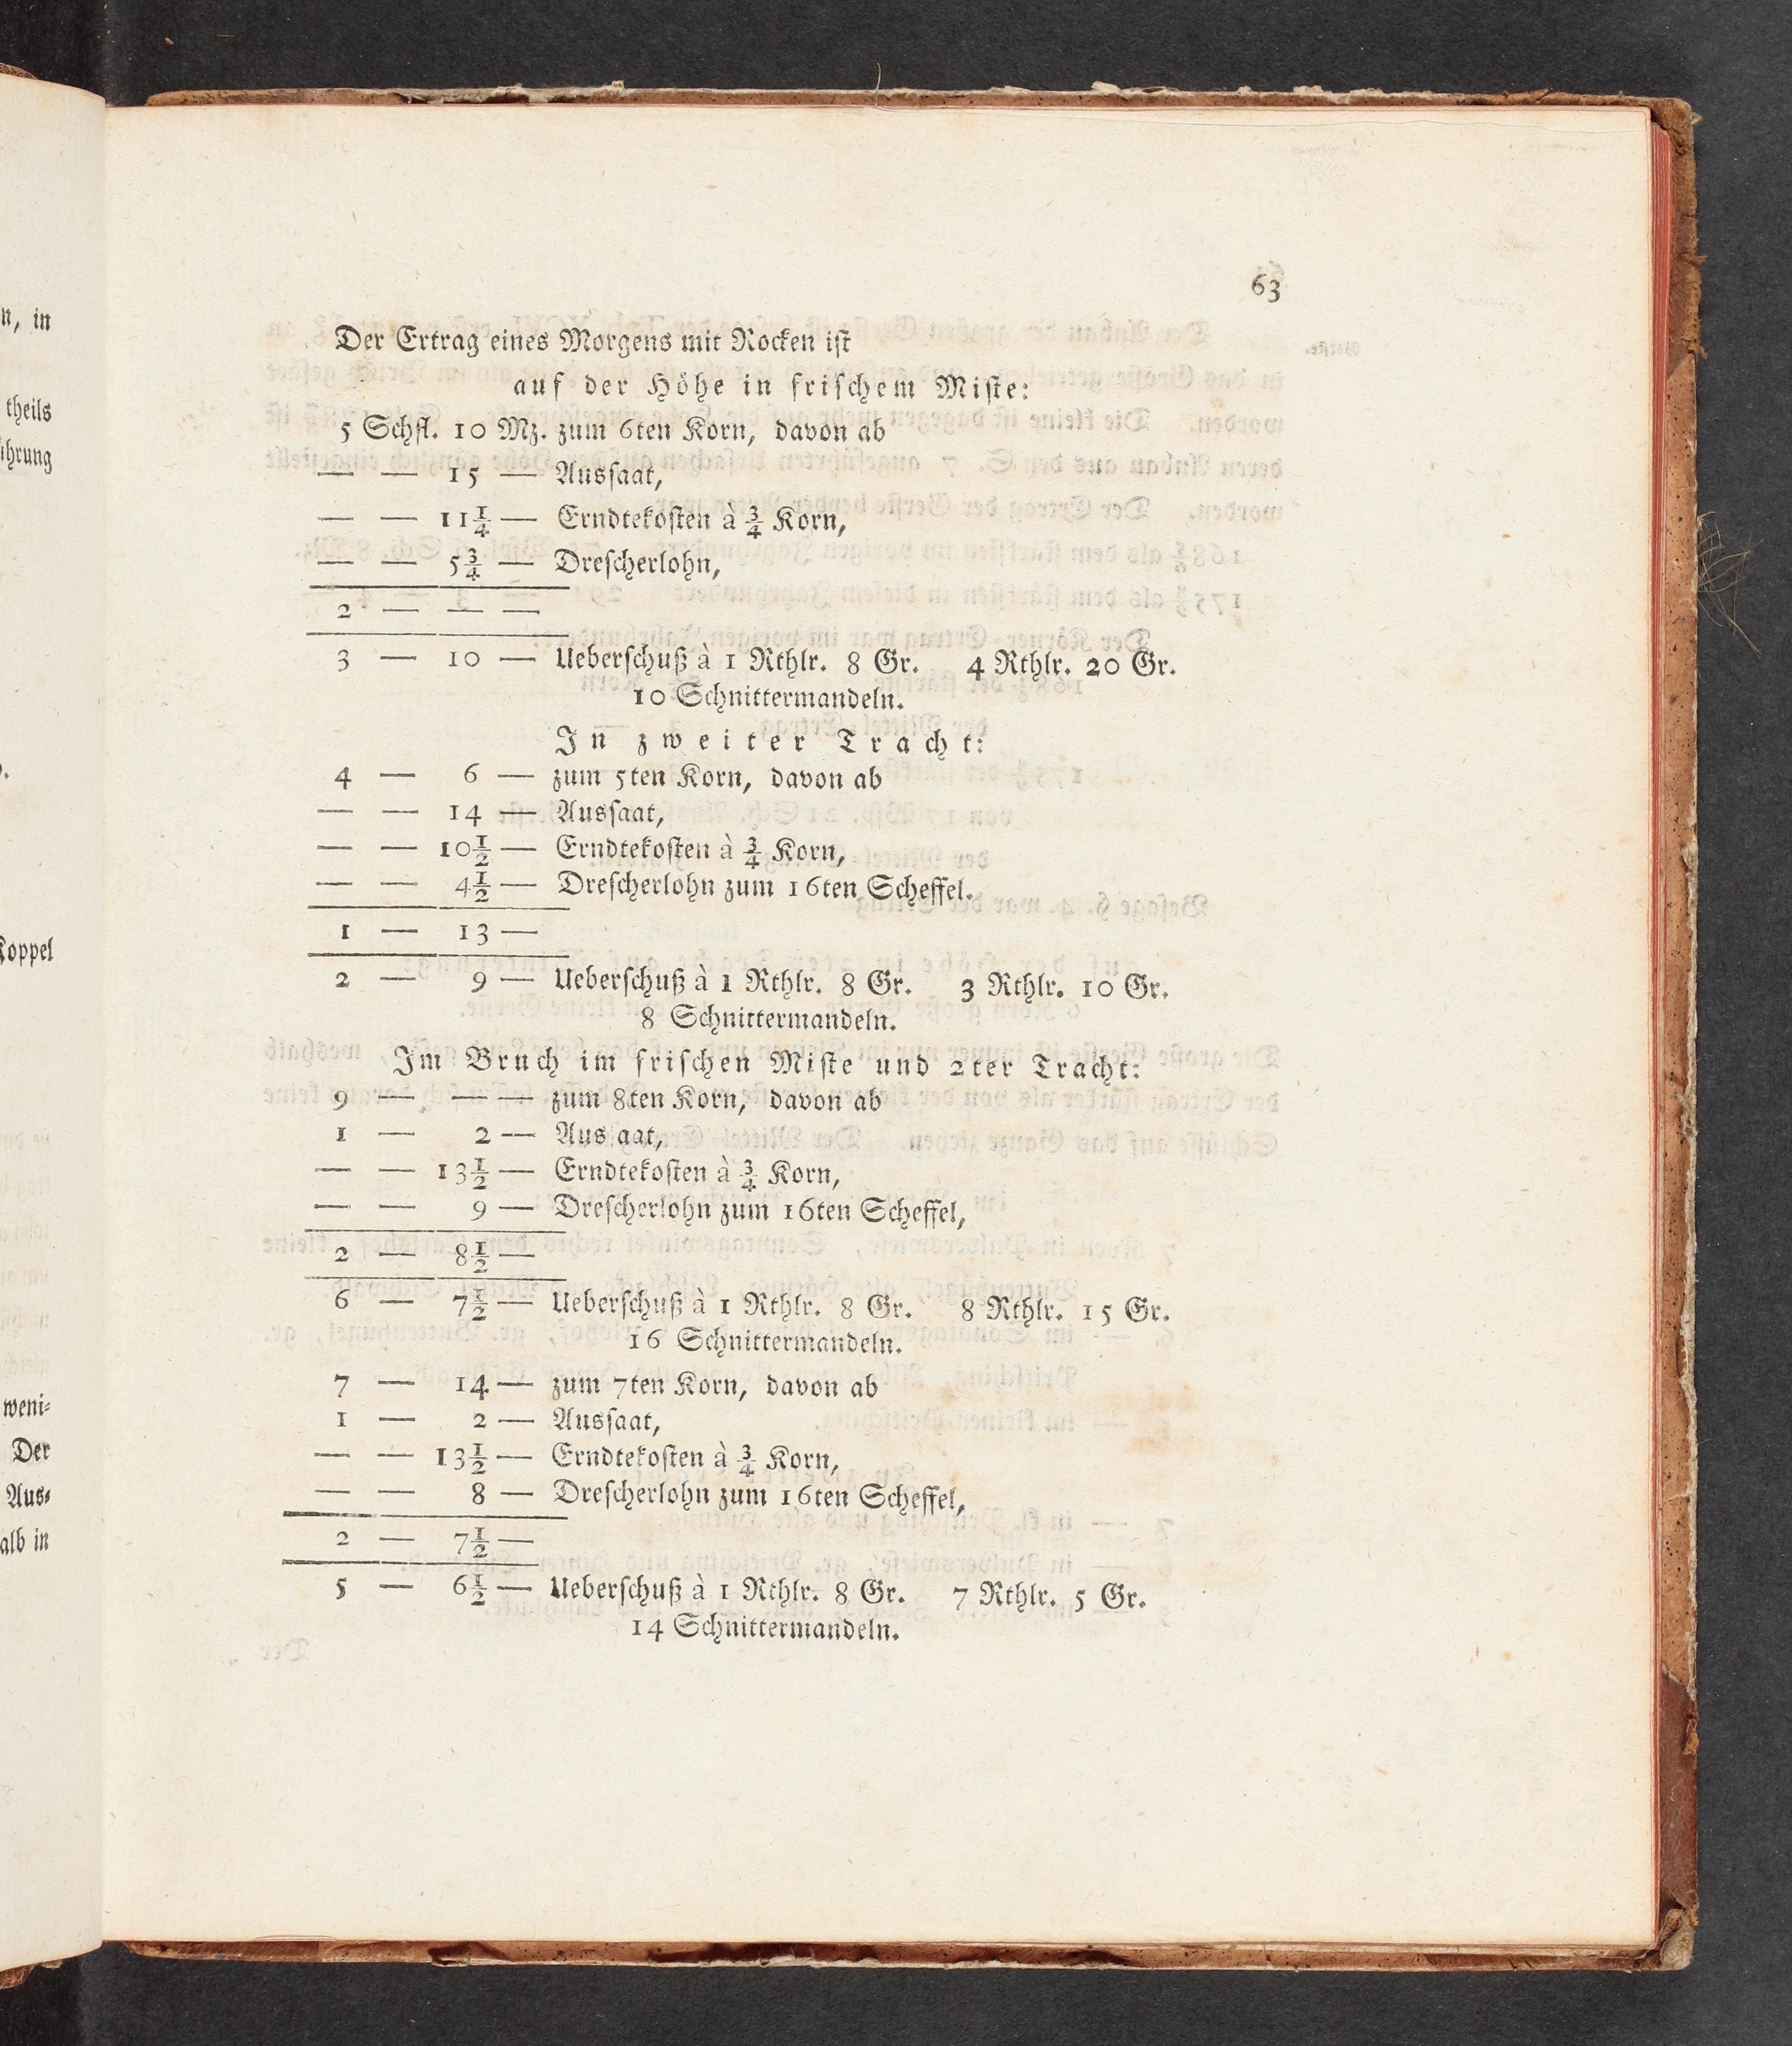 n, in
theils
ihrung
Koppel
weni-
Der
Aus-
alb in
63
Der Ertrag eines Morgens mit Rocken iſt
auf der Höhe in friſchem Miſte:
5 Schfl. 10 Mz. zum 6ten Korn, davon ab
— — 15 — Ausſaat,
— — 11¼ — Erndtekoſten à ¾ Korn,
— — 5¾ — Dreſcherlohn,
2 — — —
3 — 10 — Ueberſchuß à 1 Rthlr. 8 Gr. 4 Rthlr. 20 Gr.
10 Schnittermandeln.
In zweiter Tracht:
4 — 6 — zum 5ten Korn, davon ab
— — 14 — Ausſaat,
— — 10½ — Erndtekoſten à ¾ Korn,
— — 4½ — Dreſcherlohn zum 16ten Scheffel.
1 — 13 —
2 — 9 — Ueberſchuß à 1 Rthlr. 8 Gr. 3 Rthlr. 10 Gr.
8 Schnittermandeln.
Im Bruch im friſchen Miſte und 2ter Tracht:
9 — — — zum 8ten Korn, davon ab
1 — 2 — Ausſaat,
— — 13½ — Erndtekoſten à ¾ Korn,
— — 9 — Dreſcherlohn zum 16ten Scheffel,
2 — 8½ —
6 — 7½ — Ueberſchuß à 1 Rthlr. 8 Gr. 8 Rthlr. 15 Gr.
16 Schnittermandeln.
7 — 14 — zum 7ten Korn, davon ab
1 — 2 — Ausſaat,
— — 13½ — Erndtekoſten à ¾ Korn,
— — 8 — Dreſcherlohn zum 16ten Scheffel,
2 — 7½ —
5 — 6½ — Ueberſchuß à 1 Rthlr. 8 Gr. 7 Rthlr. 5 Gr.
14 Schnittermandeln.